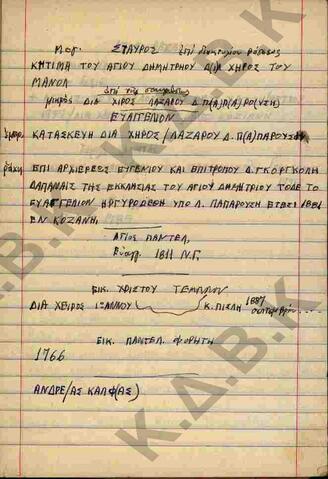 Μεγ. ΣΤΑΥΡΟΣ επί
ΚΤΗΤΙΜΑ ΤΟΥ ΑΓΙΟΥ ΔΗΜΗΤΡΙΟΥ ΔΙΑ ΧΗΡΟΣ ΤΟΥ
ΜΑΝΟΛ
επί της
ΔΙΑ ΧΙΡΟΣ ΛΑΖΑΡΟΥ Δ. Π(Α)Π(Α)ΡΟ(ΥΣΗ)
ΕΥΑΓΓΕΛΙΟΝ
ΚΑΤΑΣΚΕΥΗ ΔΙΑ ΧΗΡΟΣ / ΛΑΖΑΡΟΥ Δ. Π(ΑΠΑΡΟΥΣΗ
ράχη ΕΠΙ ΑΡΧΙΕΡΕΩΣ ΕΥΓΕΝΙΟΥ ΚΑΙ ΕΠΙΤΡΟΠΟΥ Δ. ΓΚΟΡΓΚΟΛΗ
ΔΑΠΑΝΑΙΣ ΤΗΣ ΕΚΚΛΗΣΙΑΣ ΤΟΥ ΑΓΙΟΥ ΔΗΜΗΤΡΙΟΥ ΤΟΔΕ ΤΟ
ΕΥΑΓΓΕΛΙΟΝ ΗΡΓΥΡΩΘΕΗ ΥΠΟ Λ. ΠΑΠΑΡΟΥΣΗ ΕΤΕΣΙ 1881
ΕΝ ΚΟΖΑΝΗ
ΑΓΙΟΣ ΠΑΝΤΕΛ.
Ευαγγ. 1811 Ν.Γ.
ΕΙΚ. ΧΡΙΣΤΟΥ ΤΕΜΠΛΟΥ
ΔΙΑ ΧΕΙΡΟΣ ΙΩΑΝΝΟΥ Κ. ΠΙΣΛΗ 1887
ΕΙΚ. ΠΑΝΤΕΛ. ΦΟΡΗΤΗ
1766
ΑΝΔΡΕ/ΑΣ ΚΑΛΦ(ΑΣ)
Κ.Δ.Β.Κ